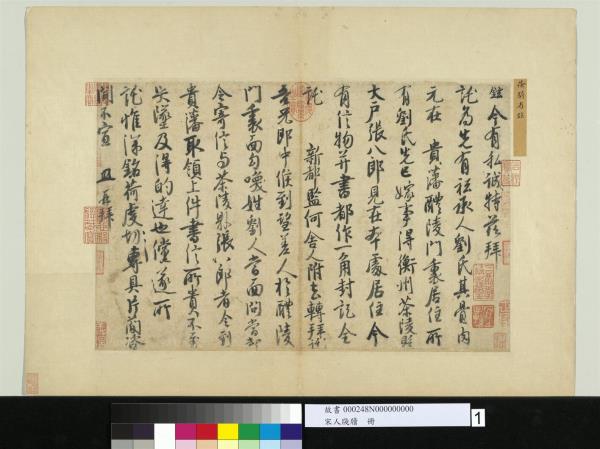 鉉今有私誠特茲拜
託為先有祗承人劉氏其骨肉
元在貴藩醴陵門裏居住所
有劉氏先已嫁事得衡州茶陵縣
大戶張八郎見在本處居住今
有信物并書都作一角封記全
託新都監何舍人附去轉拜託
吾兄郎中候到望差人於醴陵
門裏面勾喚姓劉人當面問當却
令寄信与茶陵縣張八郎者令到
貴藩取領上件書信所貴不至
失墜及得的達也儻遂所
託惟深銘荷虔切專具片簡諮
聞不宣 再拜
故書 000248N000000000
宋人牋牘 冊
1